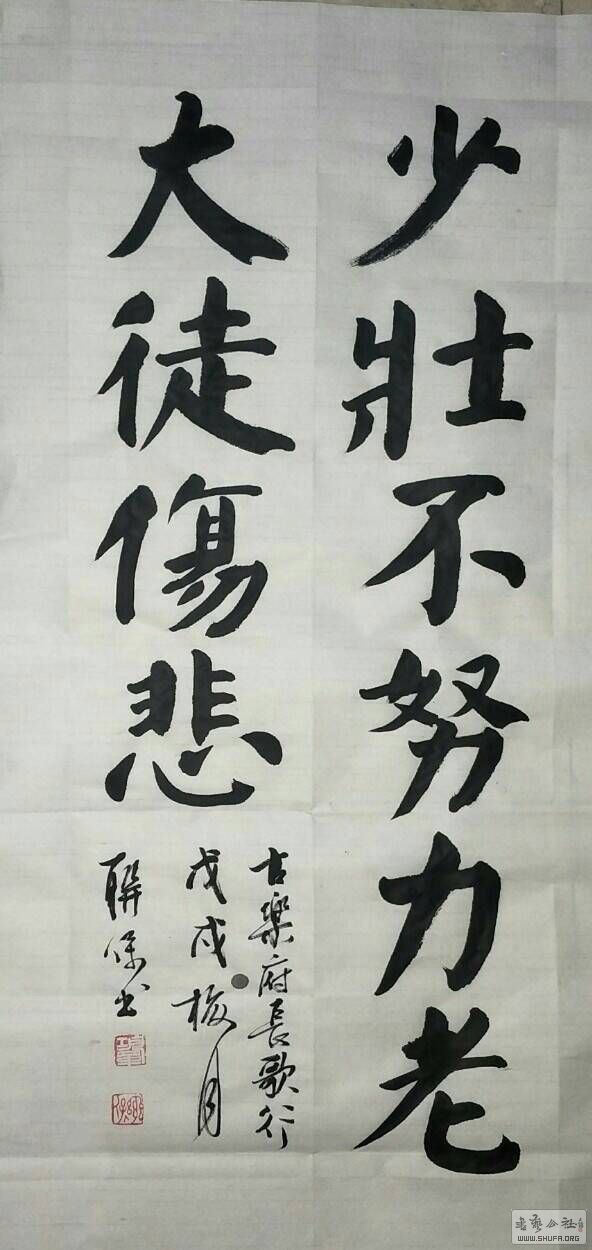 少壯不努力老
大徒傷悲
古樂府長歌行
戊戌梅月
聯保书
書藝公社
WWW.SHUFA.ORG